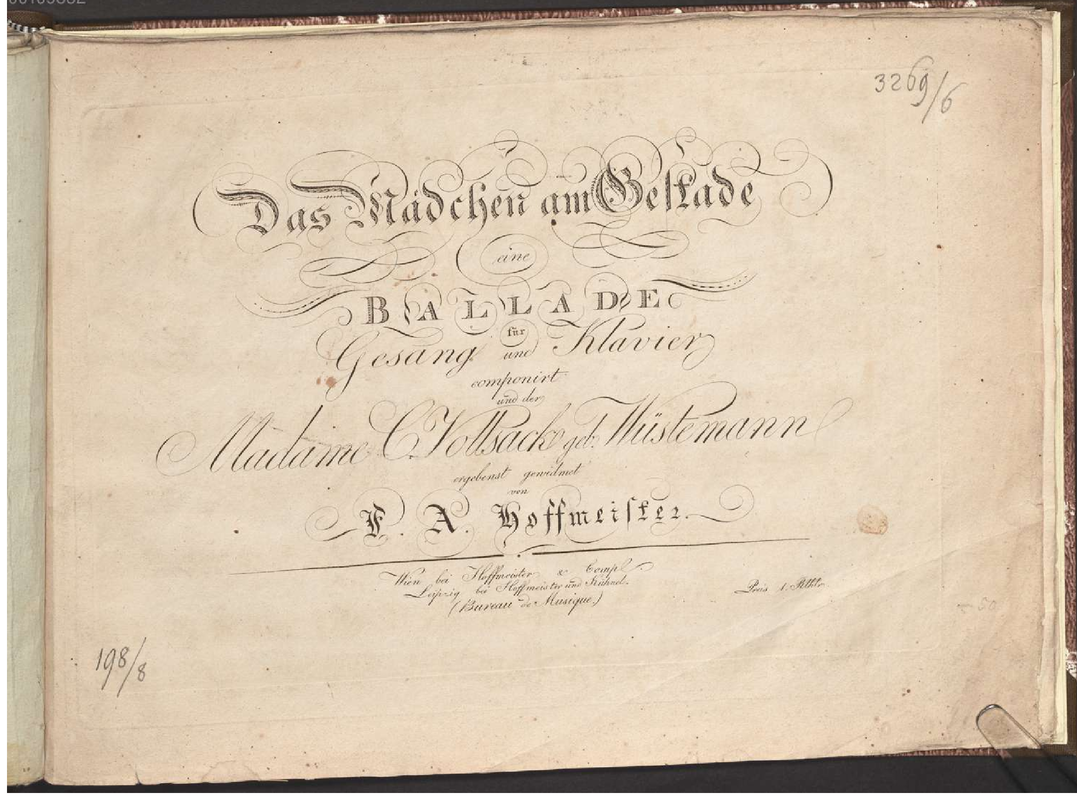 3269/6
Das Mädchen am Gestade
eine
BALLADE
für
Gesang und Klavier
componirt
und der
Madame C. Vollsack geb. Wüstemann
ergebenst gewidmet
von
F. A. Hoffmeister.
Wien bei Hoffmeister & Comp.
Leipzig bei Hoffmeister und Kühnel.
(Bureau de Musique.)
Preis 1. Rthlr.
198/8